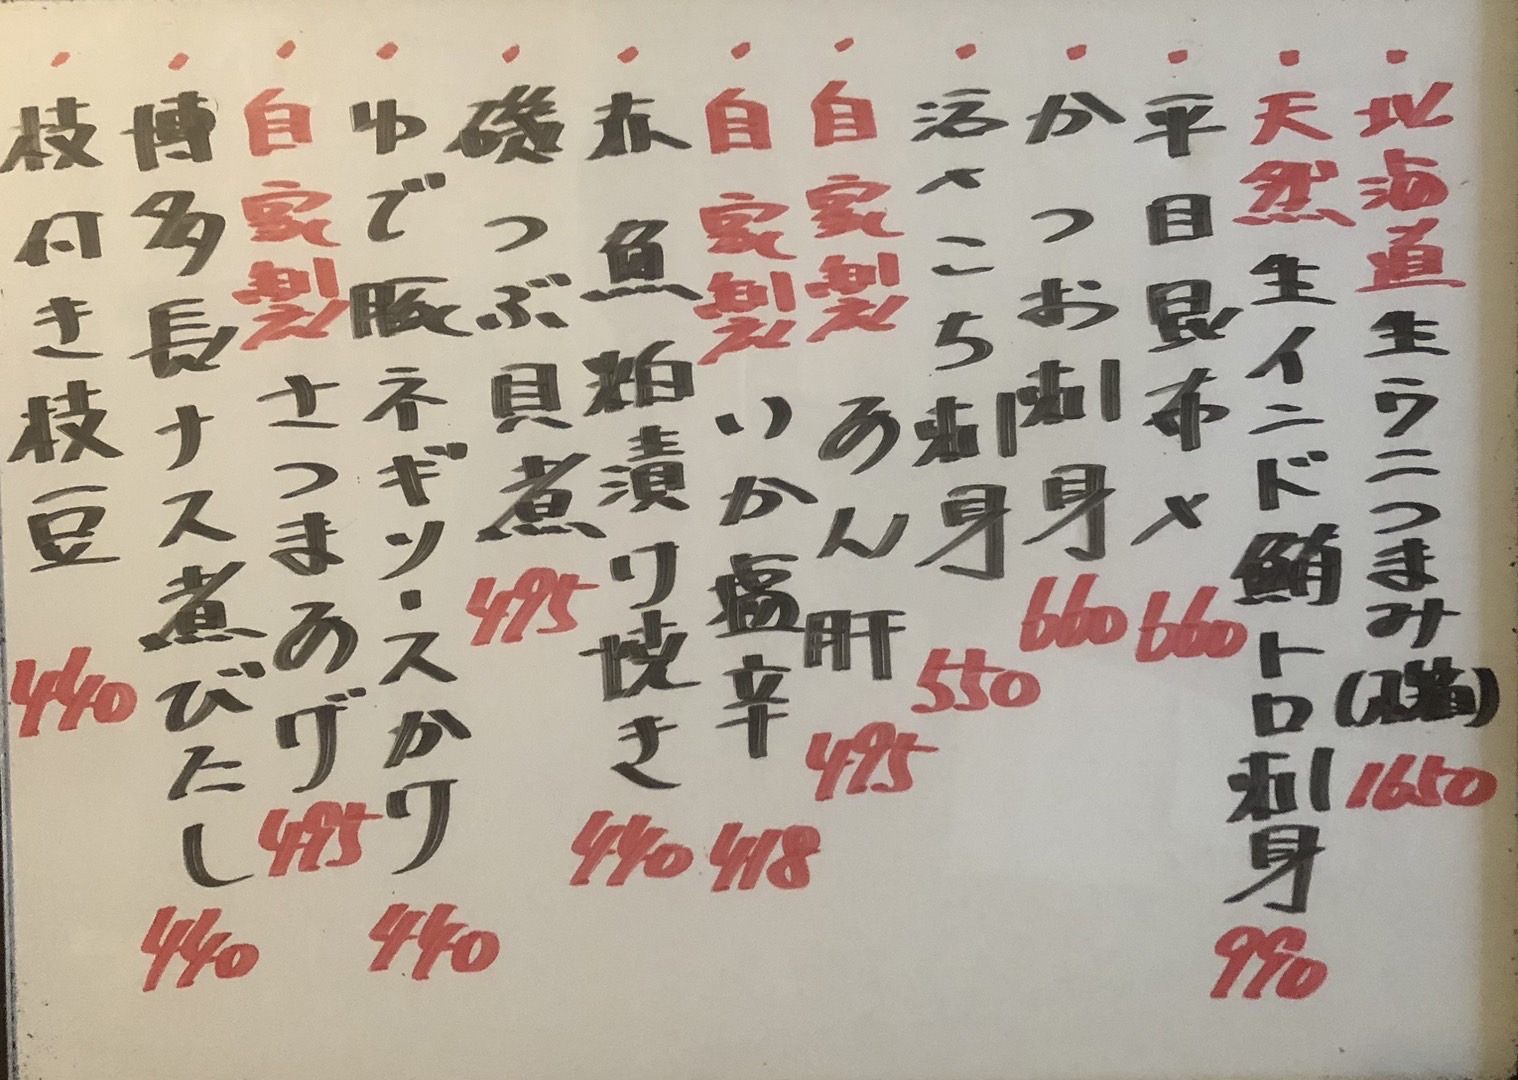 ・北海道生ウニつまみ 1650
・天然生インド鮪トロ刺身 990
・平目昆布〆 660
・かつお刺身 660
・活〆こち刺身 550
・自家製あん肝 495
・自家製いか塩辛 418
・赤魚粕漬り焼き 440
・磯つぶ貝煮 495
・ゆで豚ネギソースかり 440
・自家製さつまあげ 495
・博多長ナス煮びたし 440
・枝付き枝豆 440